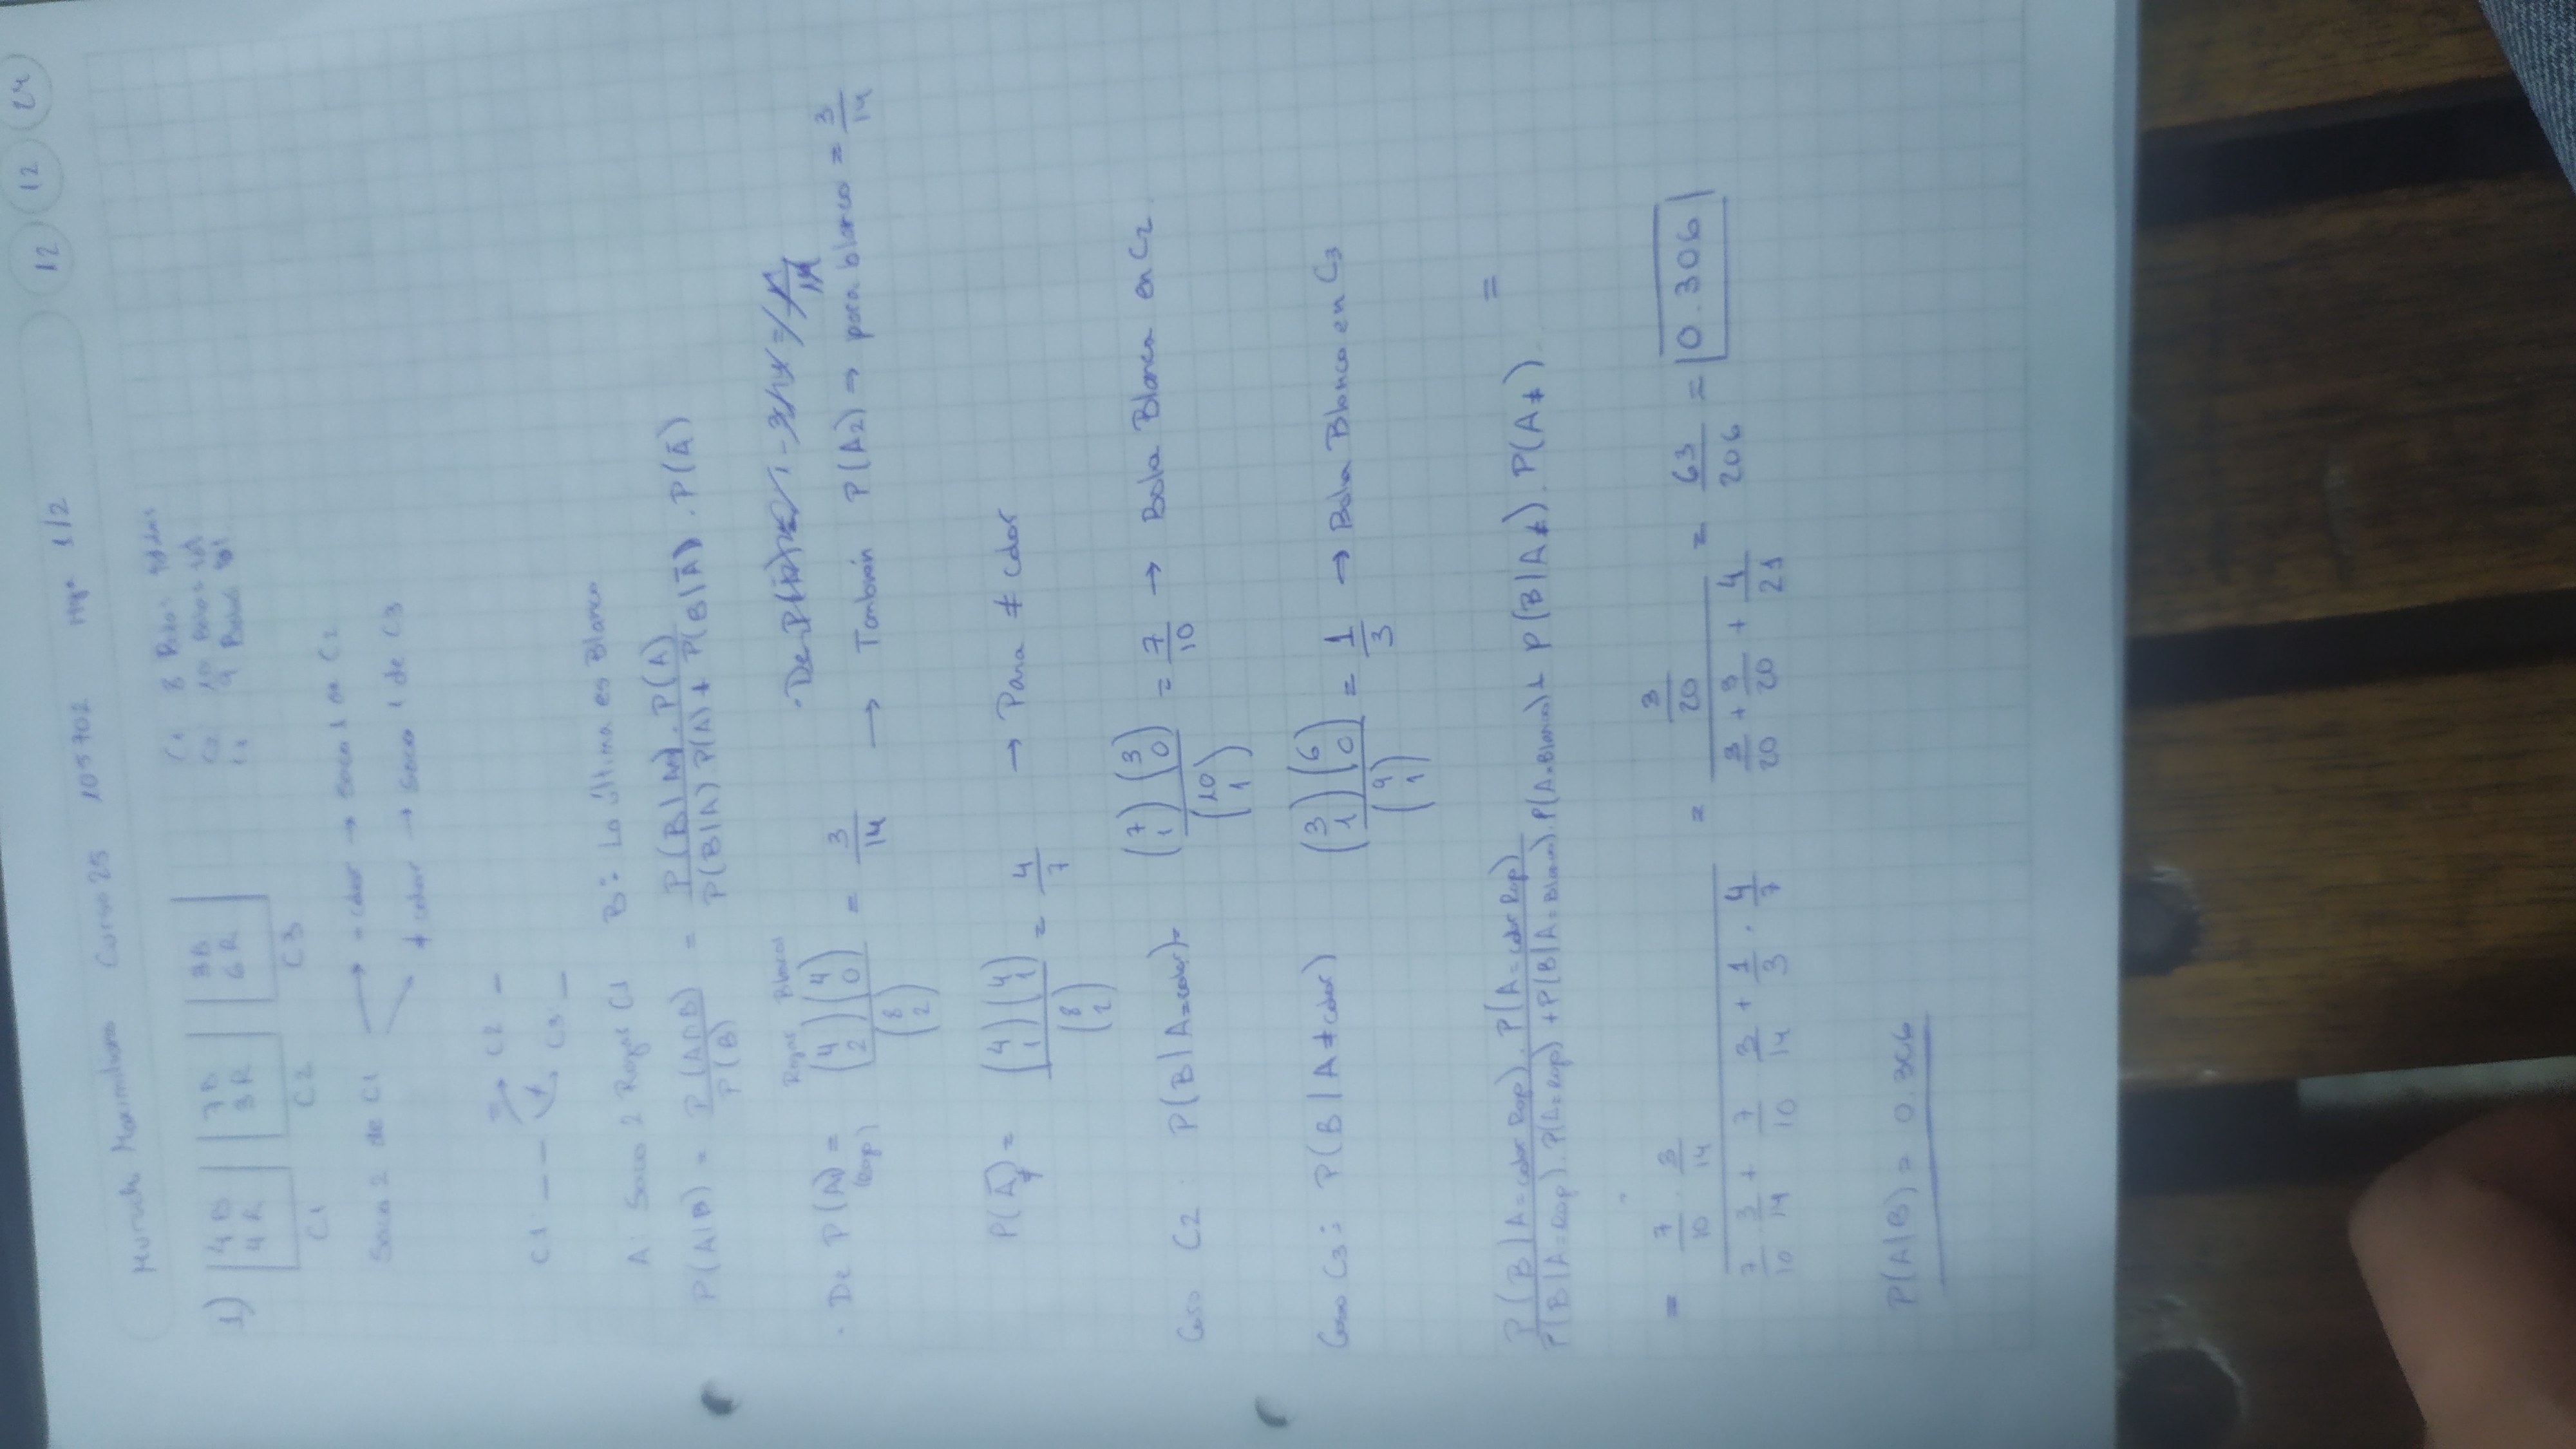 Maximiliano Curso 25 105702 Hoja 1/2 12 12 24
1) 4B 7B 3B C1 8 Bolas
4R 3R 6R C2 10 Bolas tot
C1 C2 C3 9 Bolas tot
Saco 2 de C1 → = color → Saco 1 de C2
→ ≠ color → Saco 1 de C3
= C2 _
C1: _ _
≠ C3: _
A: Saco 2 Rojas C1 B: La última es Blanca
P(A|B) = P(A∩B) / P(B) = P(B|A).P(A) / P(B|A).P(A) + P(B|Ā).P(Ā)
Rojas Blancas
· De P(A) = (4 2)(4 0) / (8 2) = 3/14 → También P(A2) ⇒ para blanco = 3/14
P(Ā≠) = (4 1)(4 1) / (8 2) = 4/7 → Para ≠ color
Caso C2: P(B|A=color)= (7 1)(3 0) / (10 1) = 7/10 → Bola Blanca en C2.
Caso C3: P(B|A≠color) (3 1)(6 0) / (9 1) = 1/3 → Bola Blanca en C3
P(B|A=color Rojo).P(A=color Rojo) / P(B|A=Rojo).P(A=Rojo) + P(B|A=Blanco).P(A=Blanco) + P(B|A≠).P(A≠) =
= 7/10 . 3/14 / 7/10 3/14 + 7/10 3/14 + 1/3 . 4/7 = 3/20 / 3/20 + 3/20 + 4/21 = 63/206 = 0.306
P(A|B) = 0.306